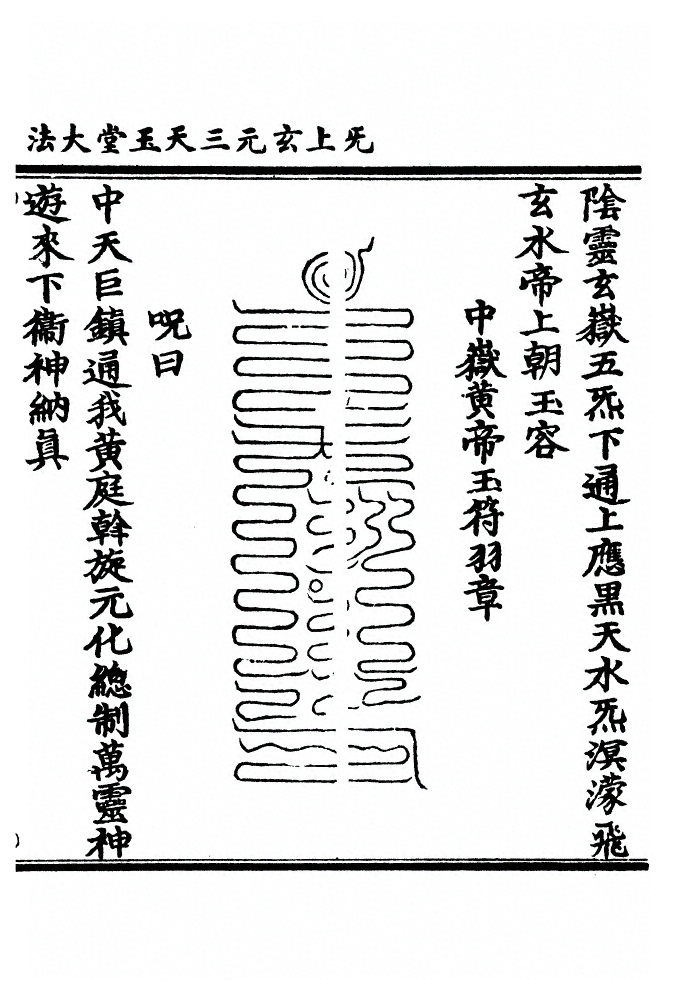 法大堂玉天三元玄上旡
陰靈玄嶽五炁下通上應黑天水炁溟濛飛
玄水帝上朝玉容
中嶽黄帝玉符羽章
呪曰
中天巨鎮通我黄庭斡旋元化總制萬靈神
遊來下衞神納眞